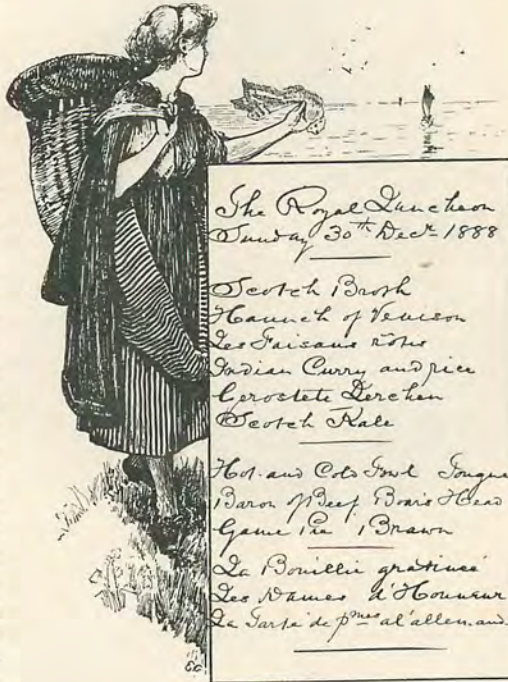 The Royal Luncheon
Sunday 30th Decr 1888
Scotch Broth
Haunch of Venison
Les Faisans rôtis
Indian Curry and rice
Gerostete Lerchen
Scotch Kale
Hot and Cold Fowl Tongue
Baron of Beef Boars Head
Game Pie Brawn
La Bouillie gratinée
Les Dames d'Honneur
La Tarte de pmes a l'allemand
EC